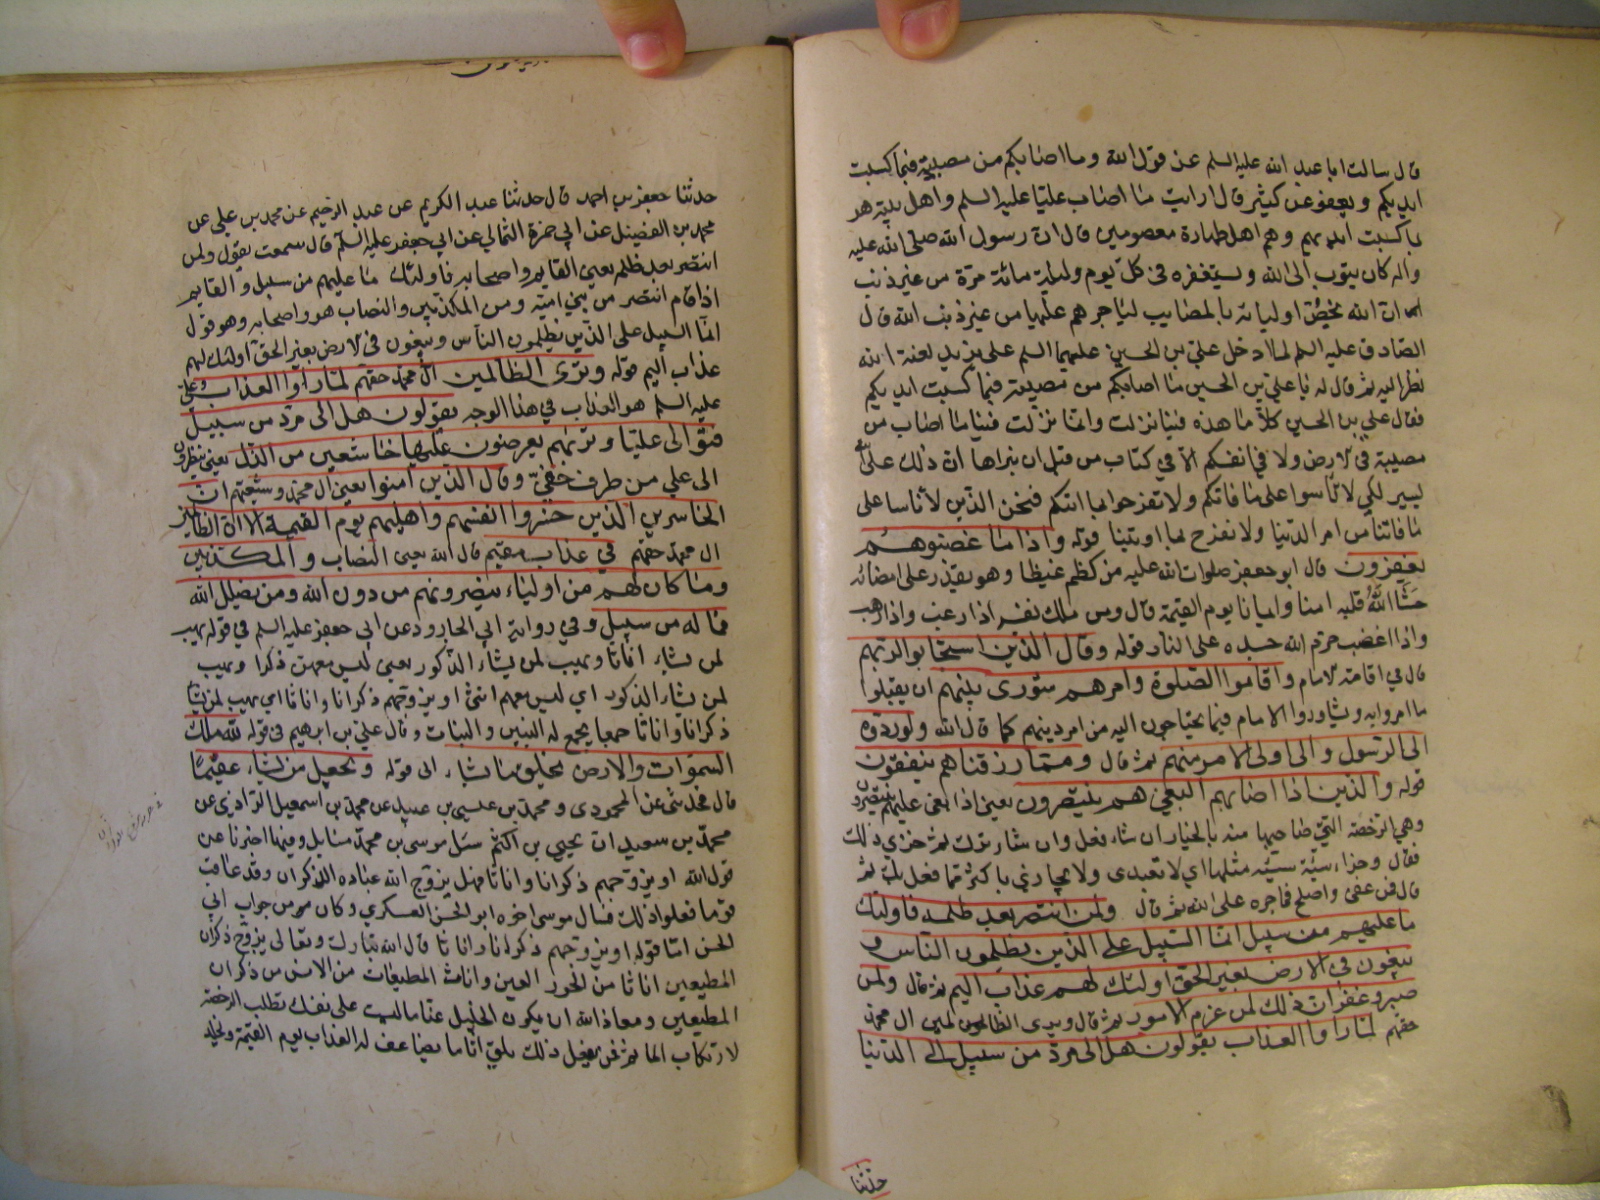 قال سالت ابا عبد الله عليه السلم عن قول الله وما اصابكم من مصيبة فبما كسبت
ايديكم ويعفو عن كثير قال ارايت ما اصاب عليا عليه السلم واهل بيته هو
بما كسبت ايديهم وهم اهل طهارة معصومين قال ان رسول الله صلى الله عليه
واله كان يتوب الى الله ويستغفره فى كل يوم وليلة مائة مرة من غير ذنب
ان الله يخص اوليائه بالمصايب لياجرهم عليها من غير ذنب الله قال
الصادق عليه السلم لما دخل على بن الحسين عليهما السلم على يزيد لعنه الله
نظر اليه ثم قال له يا على بن الحسين ما اصابكم من مصيبة فبما كسبت ايديكم
فقال على بن الحسين كلا ما هذه فينا نزلت وانما نزلت فينا ما اصاب من
مصيبة فى الارض ولا فى انفسكم الا فى كتاب من قبل ان نبراها ان ذلك على الله
يسير لكى لا تاسوا على ما فاتكم ولا تفرحوا بما اتيكم فنحن الذين لا ناسا على
ما فاتنا من امر الدنيا ولا نفرح بما اوتينا قوله واذا ما غضبوهم
يغفرون قال ابو جعفر صلوات الله عليه من كظم غيظا وهو يقدر على امضائه
حشا الله قلبه امنا وايمانا يوم القيمة قال ومن ملك نفسه اذا رغب واذا رهب
واذا غضب حرم الله جسده على النار قوله وقال الذين استجابوا لربهم
قال فى اقامة الامام واقاموا الصلوة وامرهم شورى بينهم ان يقبلوا
ما امروا به ويشاوروا الامام فيما يحتاجون اليه من امر دينهم كما قال الله ولو ردوه
الى الرسول والى اولى الامر منهم ثم قال ومما رزقناهم ينفقون
قوله والذين اذا اصابهم البغى هم ينتصرون يعنى اذا بغى عليهم ينتصرون
وهى الرخصة التى صاحبها منه بالخيار ان شاء فعل وان شاء ترك ثم جزى ذلك
فقال وجزاء سيئة سيئة مثلها اى لا تعتدى ولا يجازى باكثر مما فعل به ثم
قال فمن عفى واصلح فاجره على الله ثم قال ولمن انتصر بعد ظلمه فاولئك
ما عليهم من سبيل انما السبيل على الذين يظلمون الناس و
يبغون فى الارض بغير الحق اولئك لهم عذاب اليم ثم قال ولمن
صبر وغفر ان ذلك لمن عزم الامور ثم قال وترى الظالمين ال محمد
حقهم لما راوا العذاب يقولون هل الى مرد من سبيل الى الدنيا
حدثنا
حدثنا جعفر بن احمد قال حدثنا عبد الكريم عن عبد الرحيم عن محمد بن على عن
محمد بن الفضيل عن ابى حمزة الثمالى عن ابى جعفر عليه السلم قال سمعت يقول ولمن
انتصر بعد ظلمه يعنى القايم واصحابه فاولئك ما عليهم من سبيل والقايم
اذا قام انتصر من بنى امية ومن المكذبين والنصاب هو واصحابه وهو قول
انما السبيل على الذين يظلمون الناس ويبغون فى الارض بغير الحق اولئك لهم
عذاب اليم قوله وترى الظالمين ال محمد حقهم لما راوا العذاب وعلى
عليه السلم هو العذاب فى هذا الوجه يقولون هل الى مرد من سبيل
فنوالى عليا وتريهم يعرضون عليها خاشعين من الذل يعنى ينظرون
الى على من طرف خفى وقال الذين امنوا يعنى ال محمد وشيعتهم ان
الخاسرين الذين خسروا انفسهم واهليهم يوم القيمة الا ان الظالمين
ال محمد حقهم فى عذاب مقيم قال الله يعنى النصاب والمكذبين
وما كان لهم من اولياء ينصرونهم من دون الله ومن يضلل الله
فما له من سبيل وفى رواية ابى الجارود عن ابى جعفر عليه السلم فى قوله يهب
لمن يشاء اناثا ويهب لمن يشاء الذكور يعنى ليس معهن ذكرا ويهب
لمن يشاء الذكور اى ليس معهم انثى او يزوجهم ذكرانا واناثا اى يهب لمن يشاء
ذكرانا واناثا جميعا يجمع له البنين والبنات وقال على بن ابرهيم فى قوله لله ملك
السموات والارض يخلق ما يشاء الى قوله ويجعل من يشاء عقيما
قال فحدثنى عن المحمودى ومحمد بن عيسى بن عبيد عن محمد بن اسمعيل الرازى عن
محمد بن سعيد ان يحيى بن اكثم سئل موسى بن محمد مسايل وفيها اخبرنا عن
قول الله او يزوجهم ذكرانا واناثا فهل يزوج الله عباده الذكران وقد عاقب
قوما فعلوا ذلك فسال موسى اخوه ابو الحسن العسكرى وكان من جواب ابى
الحسن اما قوله او يزوجهم ذكرانا واناثا قال الله تبارك وتعالى يزوج ذكران
المطيعين اناثا من الحور العين واناث المطيعات من الانس من ذكران
المطيعين ومعاذ الله ان يكون الجليل عنا ما لبست على نفسك تطلب الرخصة
لارتكاب الماثم فمن يفعل ذلك يلق اثاما يضاعف له العذاب يوم القيمة ويخلد